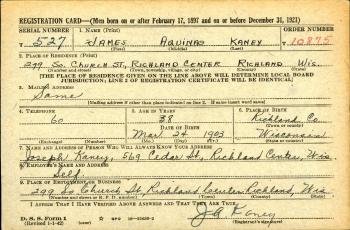 REGISTRATION CARD—(Men born on or after February 17, 1897 and on or before December 31, 1921)
SERIAL NUMBER 1. NAME (Print) ORDER NUMBER
527 JAMES AQUINAS KANEY 10875
(First) (Middle) (Last)
2. PLACE OF RESIDENCE (Print)
299 SO. CHURCH ST, RICHLAND CENTER RICHLAND WIS.
(Number and street) (Town, township, village, or city) (County) (State)
[THE PLACE OF RESIDENCE GIVEN ON THE LINE ABOVE WILL DETERMINE LOCAL BOARD
JURISDICTION; LINE 2 OF REGISTRATION CERTIFICATE WILL BE IDENTICAL]
3. MAILING ADDRESS
Same
[Mailing address if other than place indicated on line 2. If same insert word same]
4. TELEPHONE 5. AGE IN YEARS 6. PLACE OF BIRTH
60 38 Richland Co.
DATE OF BIRTH (Town or county)
Mar 24 1903 Wisconsin
(Mo.) (Day) (Yr.) (State or country)
7. NAME AND ADDRESS OF PERSON WHO WILL ALWAYS KNOW YOUR ADDRESS
Joseph Kaney, 569 Cedar St, Richland Center, Wis
8. EMPLOYER'S NAME AND ADDRESS
Self
9. PLACE OF EMPLOYMENT OR BUSINESS
299 So Church St, Richland Center, Richland, Wis
(Number and street or R. F. D. number) (Town) (County) (State)
I AFFIRM THAT I HAVE VERIFIED ABOVE ANSWERS AND THAT THEY ARE TRUE.
D. S. S. Form 1
(Revised 1-1-42) (over)
J A Kaney
(Registrant's signature)